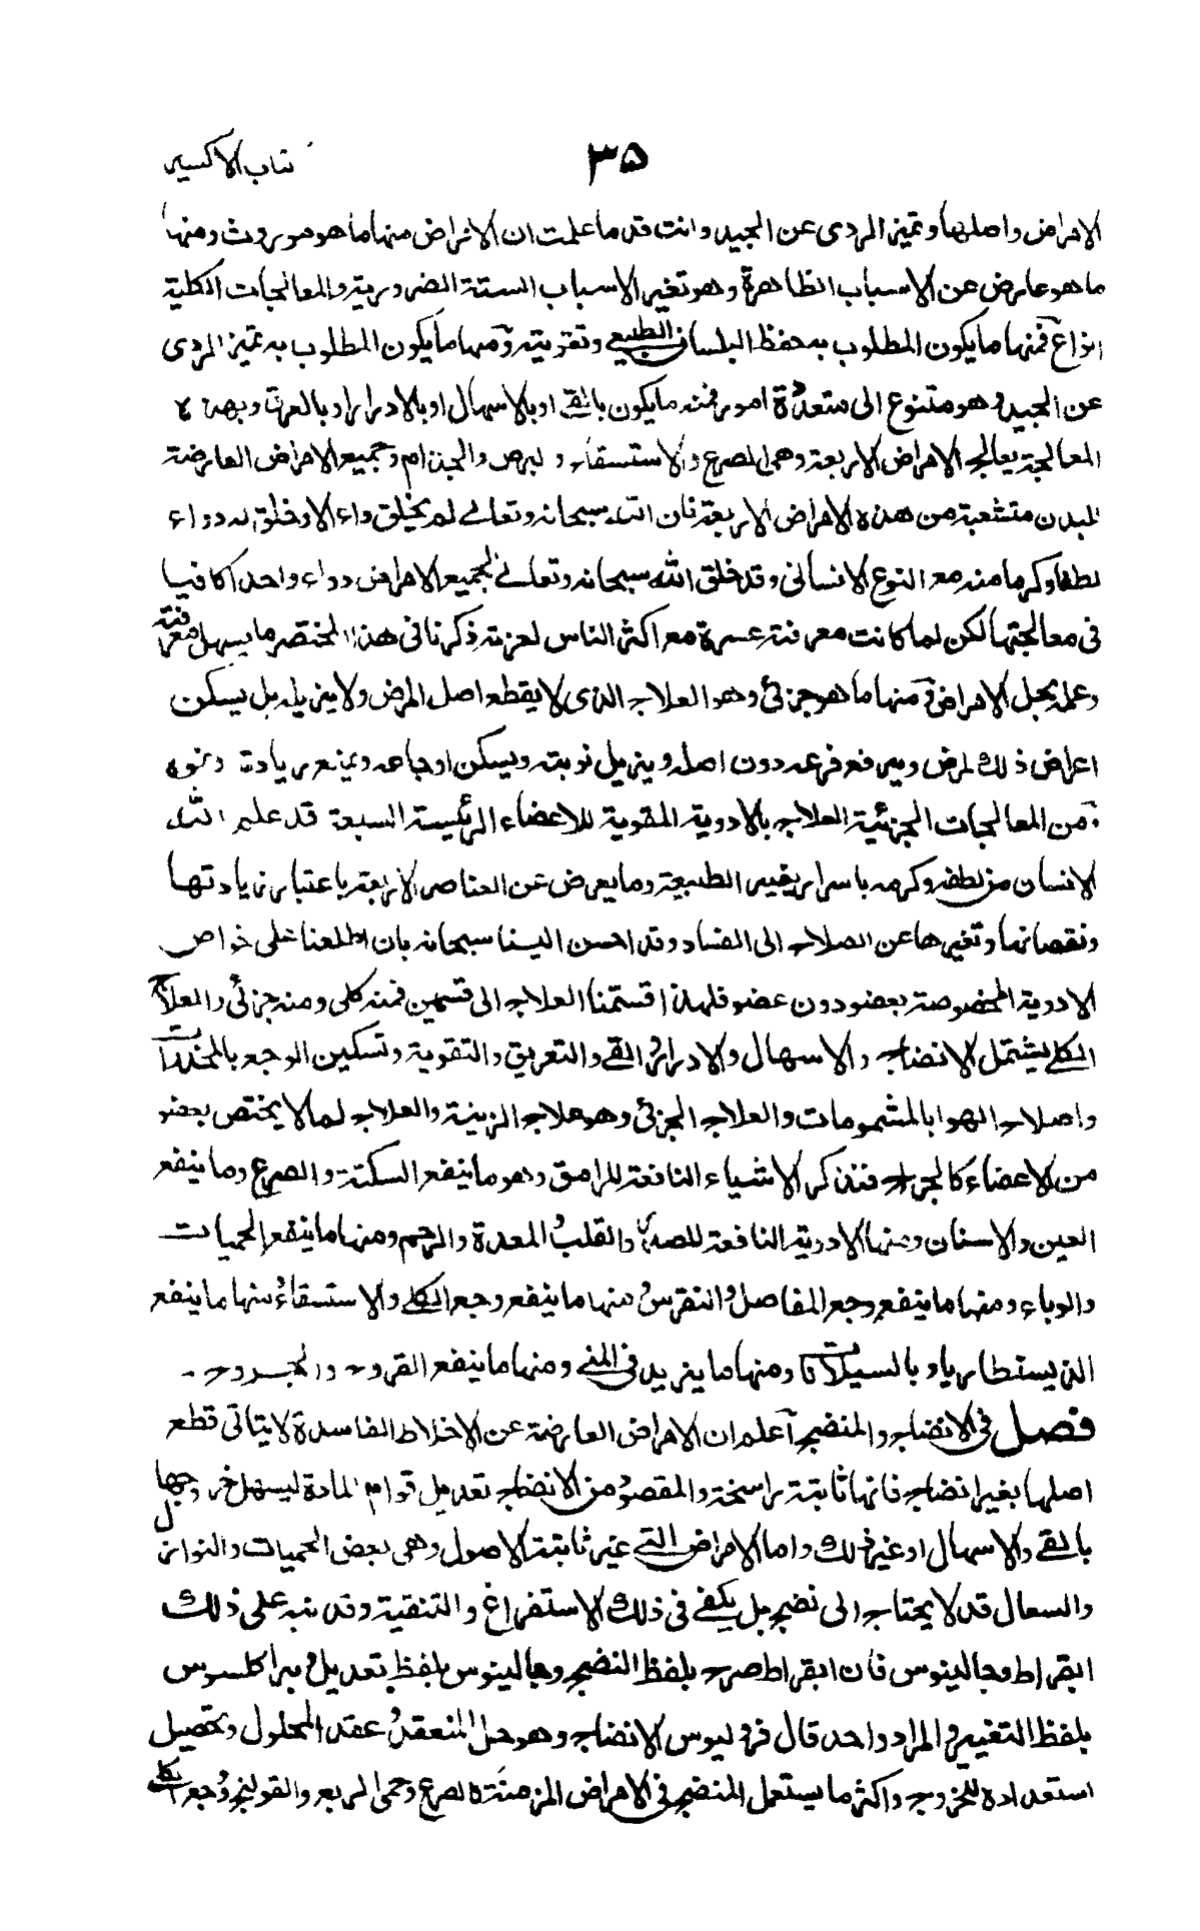 ۳۵
كتاب الاكسير
الامراض واصلها وتميز الردى عن الجيد وانت قد ما علمت ان الامراض منها ما هو موروث ومنها
ما هو عارض عن الاسباب الظاهرة وهو تغير الاسباب الستة الضرورية والمعالجات الكلية
انواع فمنها ما يكون المطلوب به حفظ البلسان الطبيعي وتقويته ومنها ما يكون المطلوب به تميز الردى
عن الجيد وهو متنوع الى متعددة امور فمنه ما يكون بالقى او بالاسهال او بالادرار او بالعرق وبهذه
المعالجة يعالج الامراض الاربعة وهى الصرع والاستسقاء والبرص والجذام وجميع الامراض العارضة
للبدن متشعبة من هذه الامراض الاربعة فان الله سبحانه وتعالى لم يخلق داء الا وخلق له دواء
لطفا وكرما منه مع النوع الانسانى وقد خلق الله سبحانه وتعالى لجميع الامراض دواء واحدا كافيا
فى معالجتها لكن لما كانت معرفته عسرة مع اكثر الناس لعزته ذكرنا فى هذا المختصر ما يسهل معرفته
وعمله بجل الامراض فمنها ما هو جزئى وهو العلاج الذى لا يقطع اصل المرض ولا يزيله بل يسكن
اعراض ذلك المرض ويرفع فرعه دون اصله ويزيل نوبته ويسكن اوجاعه ويمنع زيادته ونموه
من المعالجات الجزئية العلاج بالادوية المقوية للاعضاء الرئيسة السبعة قد علم الله
الانسان من لطفه وكرمه باسرار يغير الطبيعة وما يعرض عن العناصر الاربعة باعتبار زيادتها
ونقصانها وتغيرها عن الصلاح الى الفساد وقد احسن الينا سبحانه بان اطلعنا على خواص
الادوية المخصوصة بعضو دون عضو فلهذا قسمنا العلاج الى قسمين فمنه كلى ومنه جزئى والعلاج
الكلى يشتمل الانضاج والاسهال والادرار والقى والتعريق والتقوية وتسكين الوجع بالمخدرات
واصلاح الهوا بالمشمومات والعلاج الجزئى وهو علاج الزينة والعلاج لما لا يختص بعضو
من الاعضاء كالجراح فنذكر الاشياء النافعة للراس وهو ما ينفع السكتة والصرع وما ينفع
العين والاسنان ومنها الادوية النافعة للصدر والقلب والمعدة والرحم ومنها ما ينفع الحميات
والوباء ومنها ما ينفع وجع المفاصل والنقرس ومنها ما ينفع وجع الكلى والاستسقاء ومنها ما ينفع
ومنها ما يزيد فى المنى ومنها ما ينفع القروح والجروح
فصل فى الانضاج والمنضج اعلم ان الامراض العارضة عن الاخلاط الفاسدة لا يتاتى قطع
اصلها بغير انضاج فانها ثابتة راسخة والمقصود من الانضاج تعديل قوام المادة ليسهل خروجها
بالقى والاسهال او غير ذلك واما الامراض التى غير ثابتة الاصول وهى بعض الحميات والنوازل
والسعال قد لا يحتاج الى نضج بل يكفى فى ذلك الاستفراغ والتنقية وقد نبه على ذلك
ابقراط وجالينوس فان ابقراط صرح بلفظ النضج وجالينوس بلفظ تعديل وبراكلسوس
بلفظ التغيير والمراد واحد قال فرد ليوس الانضاج وهو حل المنعقد وعقد المحلول وتحصيل
استعداده للخروج واكثر ما يستعمل المنضج فى الامراض المزمنة كالصرع وحمى الربع والقولنج ووجع الكلى